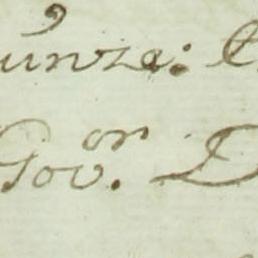 unze:
Gov.or D